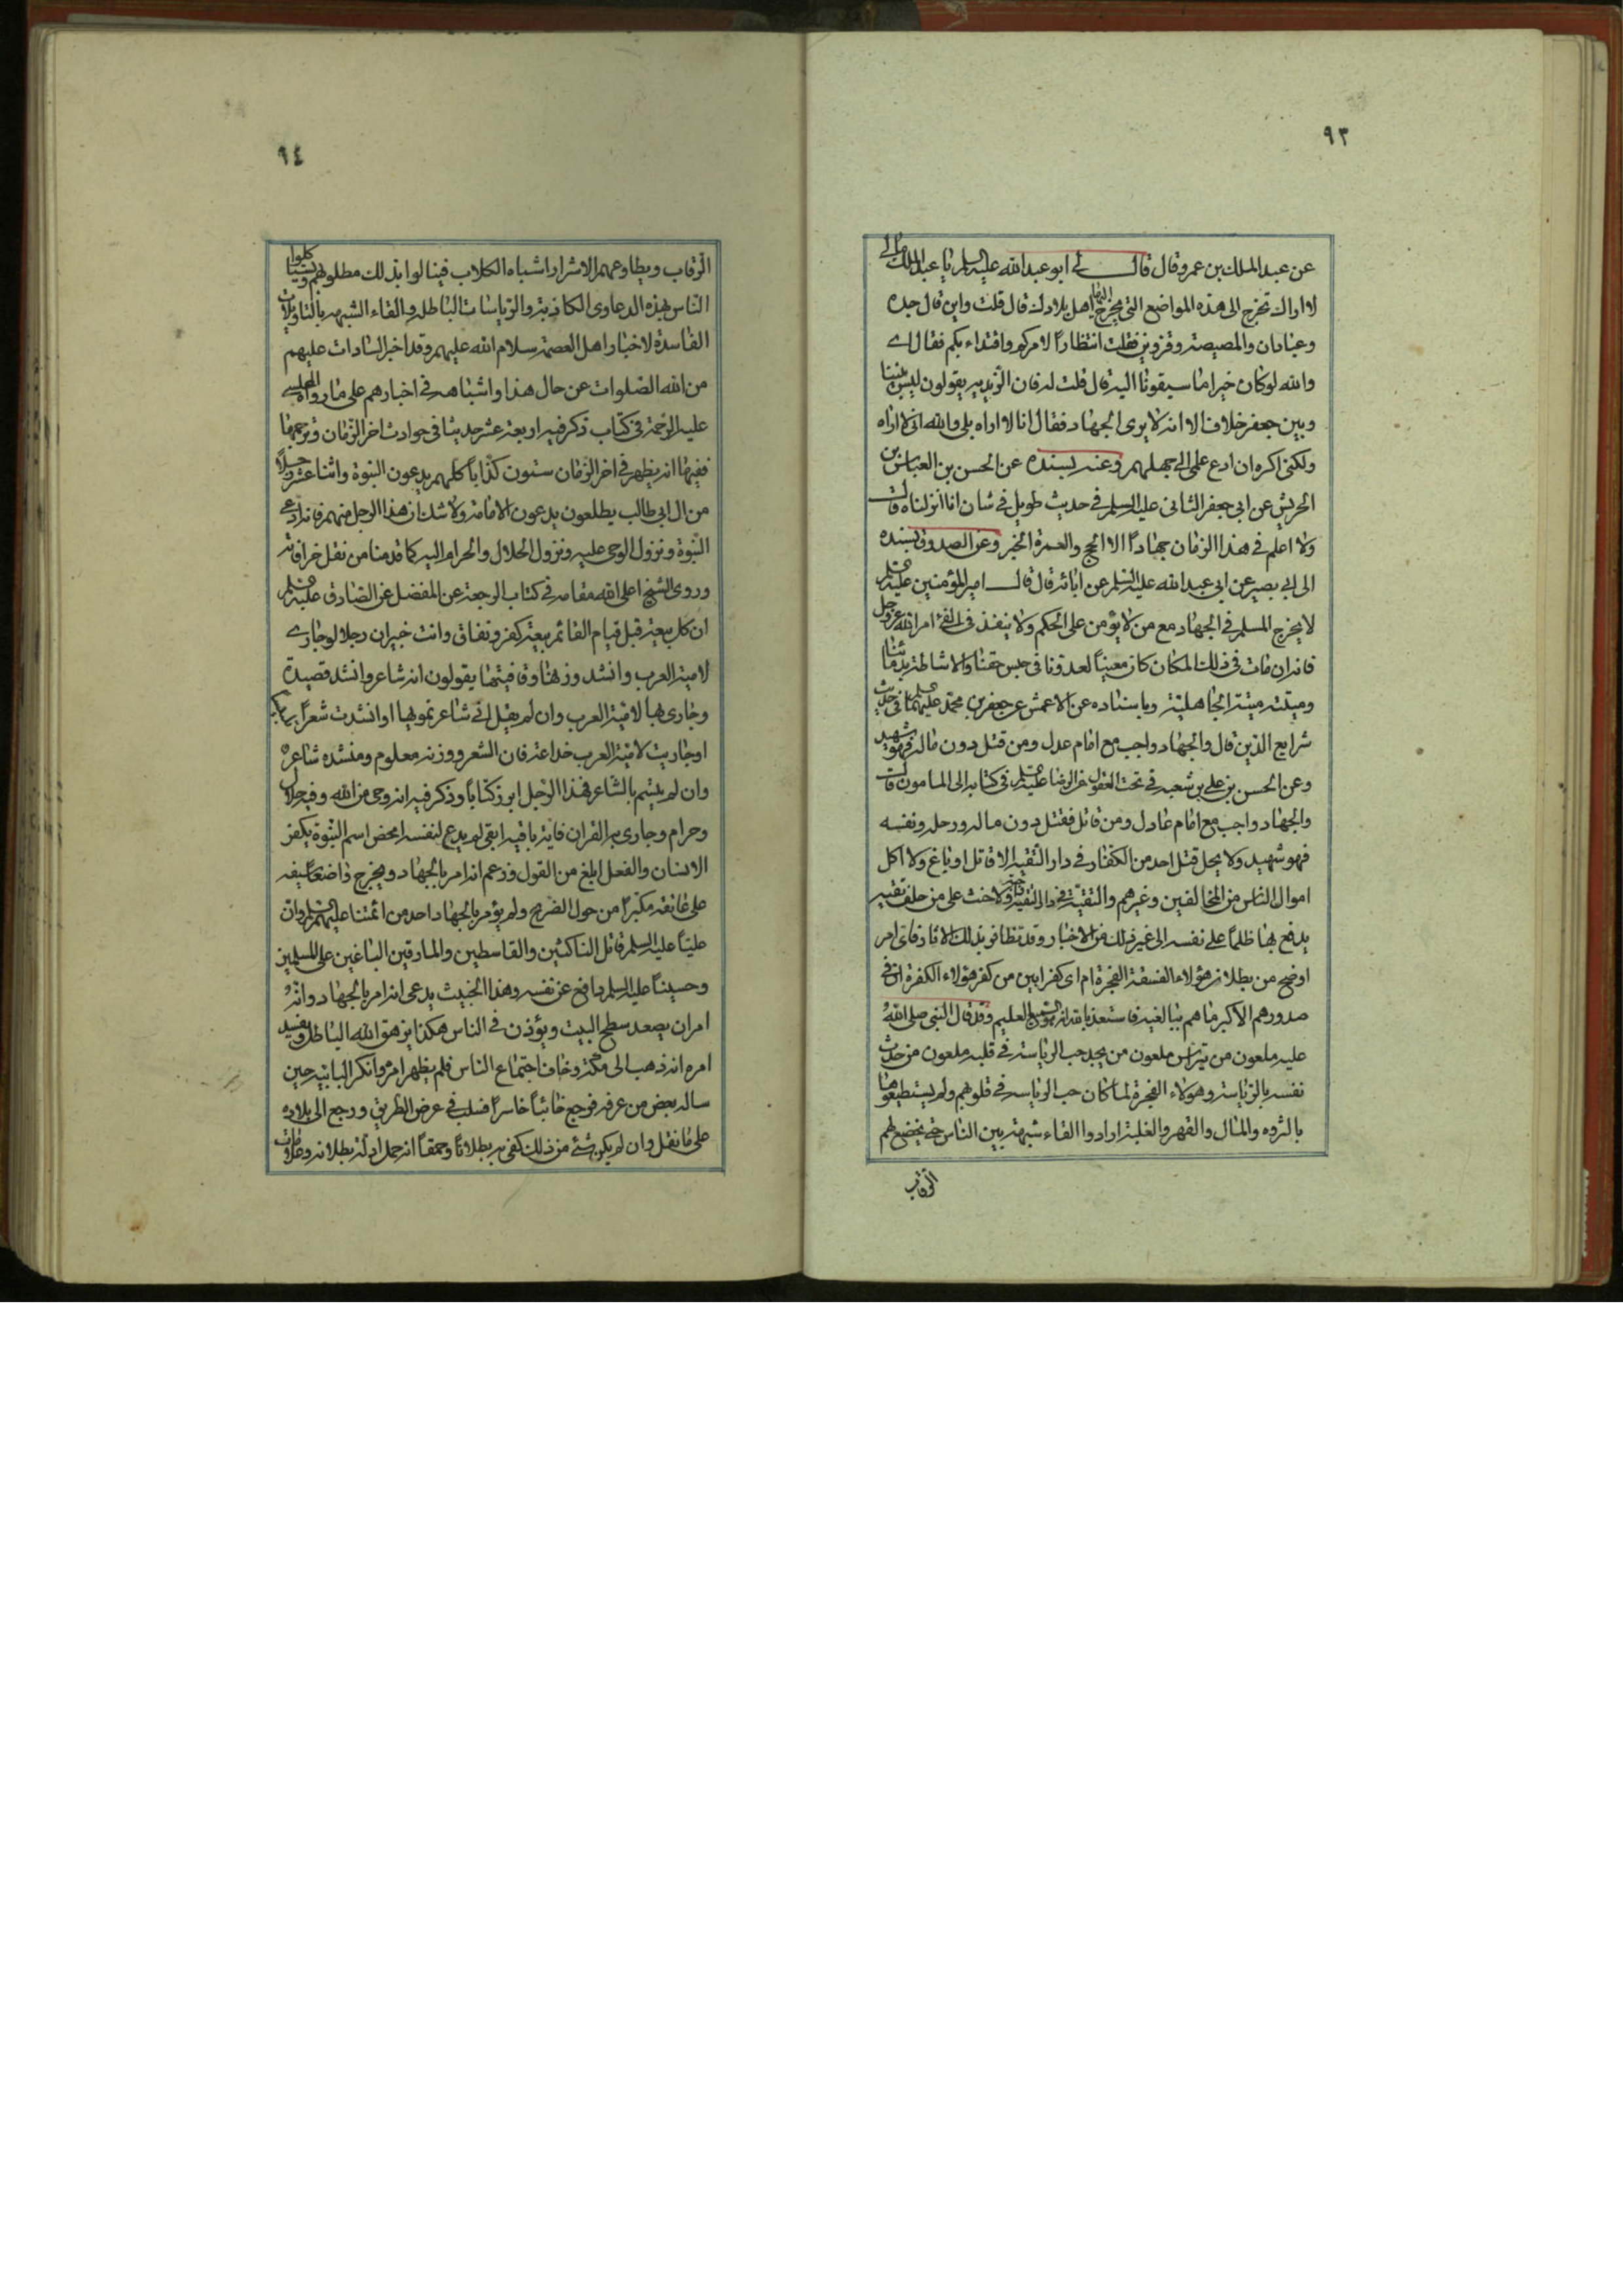 ٩٣
عن عبد الملك بن عمرو قال قال لي ابو عبد الله عليه السلم يا عبد الملك مالي
لا اراك تخرج الى هذه المواضع التي يخرج اليها اهل بلادك قال قلت واين قال جده
وعبادان والمصيصة وقزوين فقلت انتظاراً لامركم واقتداء بكم فقال اي
والله لو كان خيرا ما سبقونا اليه قال قلت له فان الزيديه يقولون ليس بيننا
وبين جعفر خلاف الا انه لا يرى الجهاد فقال انا لا اراه بلى والله اني لاراه
ولكني اكره ان ادع علمي الى جهلهم وعنه بسنده عن الحسن بن العباس بن
الحريش عن ابي جعفر الثاني عليه السلم في حديث طويل في شان انا انزلناه قال
ولا اعلم في هذا الزمان جهاداً الا الحج والعمرة الخبر وعن الصدوق بسنده
الى ابي بصير عن ابي عبد الله عليه السلم عن ابائه قال قال امير المؤمنين عليه السلم
لا يخرج المسلم في الجهاد مع من لا يؤمن على الحكم ولا ينفذ في الفئ امر الله عز وجل
فانه ان مات في ذلك المكان كان معيناً لعدونا في حبس حقنا والاشاطة بدمائنا
وميتته ميتة الجاهلية وباسناده عن الاعمش عن جعفر بن محمد عليهما السلم في حديث
شرايع الدين قال والجهاد واجب مع امام عدل ومن قتل دون ماله فهو شهيد
وعن الحسن بن علي بن شعبه في تحف العقول عن الرضا عليه السلم في كتابه الى المامون قال
والجهاد واجب مع امام عادل ومن قاتل فقتل دون ماله ورحله ونفسه
فهو شهيد ولا يحل قتل احد من الكفار في دار التقيه الا قاتل او باغ ولا اكل
اموال الناس من المخالفين وغيرهم والتقيّة في دار التقية واجبة ولا حنث على من حلف تقيه
يدفع بها ظلماً على نفسه الى غير ذلك من الاخبار وقد تظافر بذلك الاثار فاي امر
اوضح من بطلان هؤلاء الفسقة الفجرة ام اي كفر ابين من كفر هؤلاء الكفرة ان في
صدورهم الا كبر ما هم ببالغيه فاستعذ بالله انه هو السميع العليم وقد قال النبي صلى الله
عليه ملعون من تراس ملعون من يجد حب الرياسة في قلبه ملعون من حدث
نفسه بالرياسة وهولاء الفجرة لما كان حب الرياسه في قلوبهم ولم يستطيعوها
بالثروه والمال والقهر والغلبة ارادوا القاء شبهة بين الناس حتى يخضع لهم
الرقاب
٩٤
الرقاب ويطاوعهم الاشرار اشباه الكلاب فينالوا بذلك مطلوبهم وياكلوا
الناس بهذه الدعاوى الكاذبة والرياسات الباطله والقاء الشبهه بالتاويلات
الفاسدة لاخبار اهل العصمة سلام الله عليهم وقد اخبر السادات عليهم
من الله الصلوات عن حال هذا واشباهه في اخبارهم على ما رواه المجلسي
عليه الرحمة في كتاب ذكر فيه اربعة عشر حديثا في حوادث اخر الزمان وترجمها
ففيها انه يظهر في اخر الزمان ستون كذّاباً كلهم يدعون النبوة واثنا عشر رجلاً
من ال ابي طالب يطلعون يدعون الامامة ولا شك ان هذا الرجل منهم فانه ادعى
النبوة ونزول الوحي عليه ونزول الحلال والحرام اليه كما قدمنا من نقل خرافاته
وروى الشيخ اعلى الله مقامه في كتاب الرجعة عن المفضل عن الصادق عليه السلم
ان كل بيعة قبل قيام القائم بيعة كفر ونفاق وانت خبير ان رجلا لو جارى
لامية العرب وانشد وزنها وقافيتها يقولون انه شاعر وانشد قصيدة
وجارى بها لامية العرب وان لم يقل اني شاعر نموبها او انشدت شعراً
او جاريت لامية العرب خداعة فان الشعر ووزنه معلوم ومنشده شاعر
وان لم يتسم بالشاعر فهذا الرجل ابرز كتاباً وذكر فيه انه وحي من الله وفيه حلال
وحرام وجارى به القران فاية باقيه ابقى لم يدع لنفسه امحض اسم النبوة يكفر
الانسان والفعل ابلغ من القول وزعم انه امر بالجهاد ويخرج واضعاً سيفه
على عاتقه مكبراً من حول الضريح ولم يؤمر بالجهاد احد من ائمتنا عليهم السلم وان
علياً عليه السلم قاتل الناكثين والقاسطين والمارقين الباغين على المسلمين
وحسيناً عليه السلم دافع عن نفسه وهذا الخبيث يدعى انه امر بالجهاد وانه
امر ان يصعد سطح البيت ويؤذن في الناس هكذا يزهق الله الباطل ويفسد
امره انه ذهب الى مكة وخاف اجتماع الناس فلم يظهر امره وانكر البابية حين
ساله بعض من عرفه فرجع خائباً خاسراً فسلب في عرض الطريق ورجع الى بلاده
على ما نقل وان لم يكن شئ من ذلك كفى به بطلاناً وحمقاً انه جعل ادلة بطلانه وعلامات